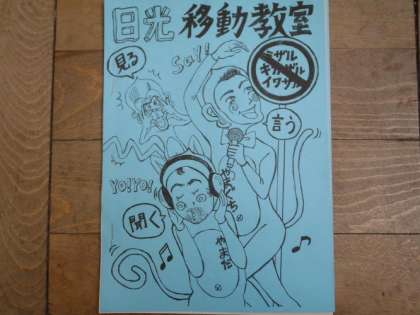 日光 移動教室
見る
Say!
ミザル
キカザル
イワザル
言う
やまぐち
Yo!Yo!
聞く
やまだ